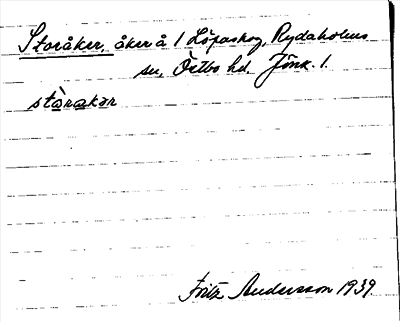 Storåker, åker å 1 Löpaskog, Rydaholms
sn, Östbo hd, Jönk. l.
stòrakər
Fritz Andersson 1939